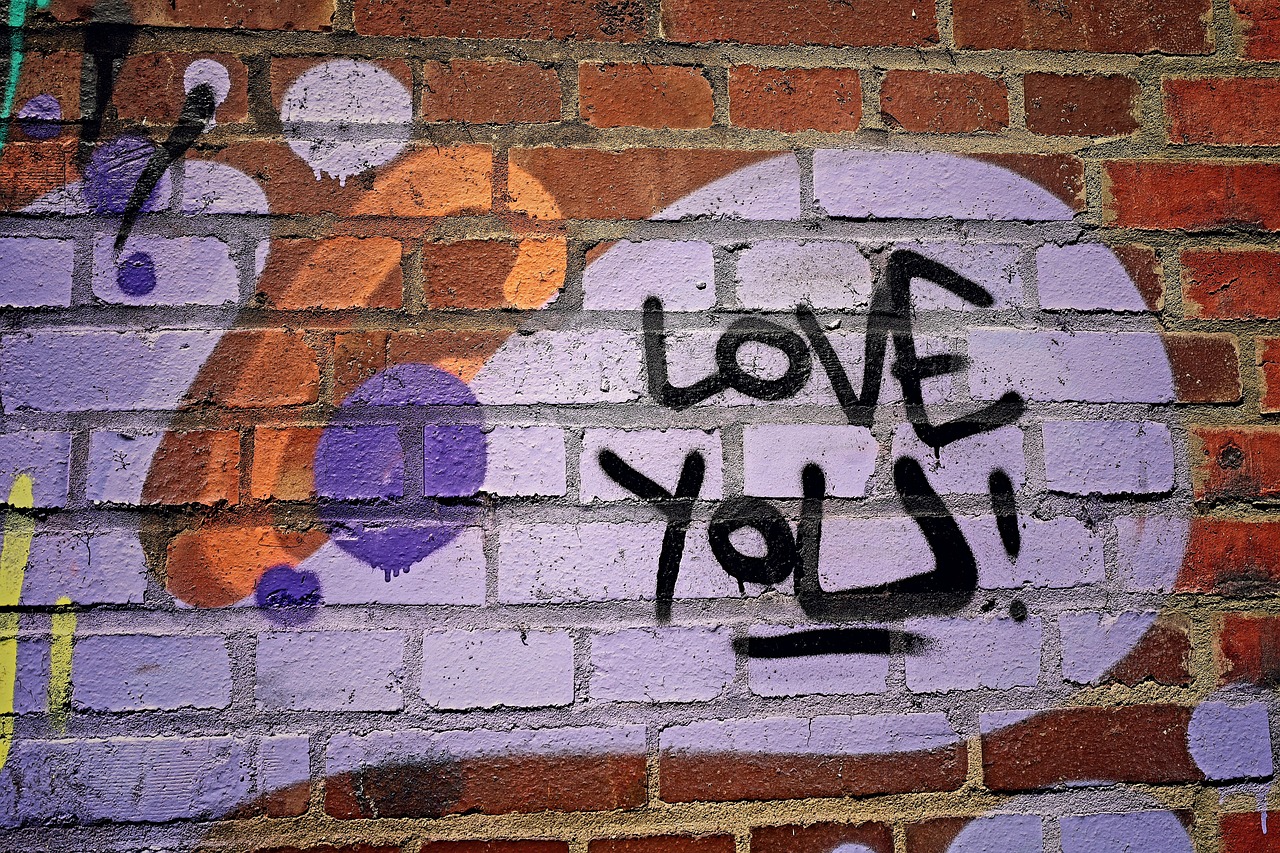 LOVE
YOU!